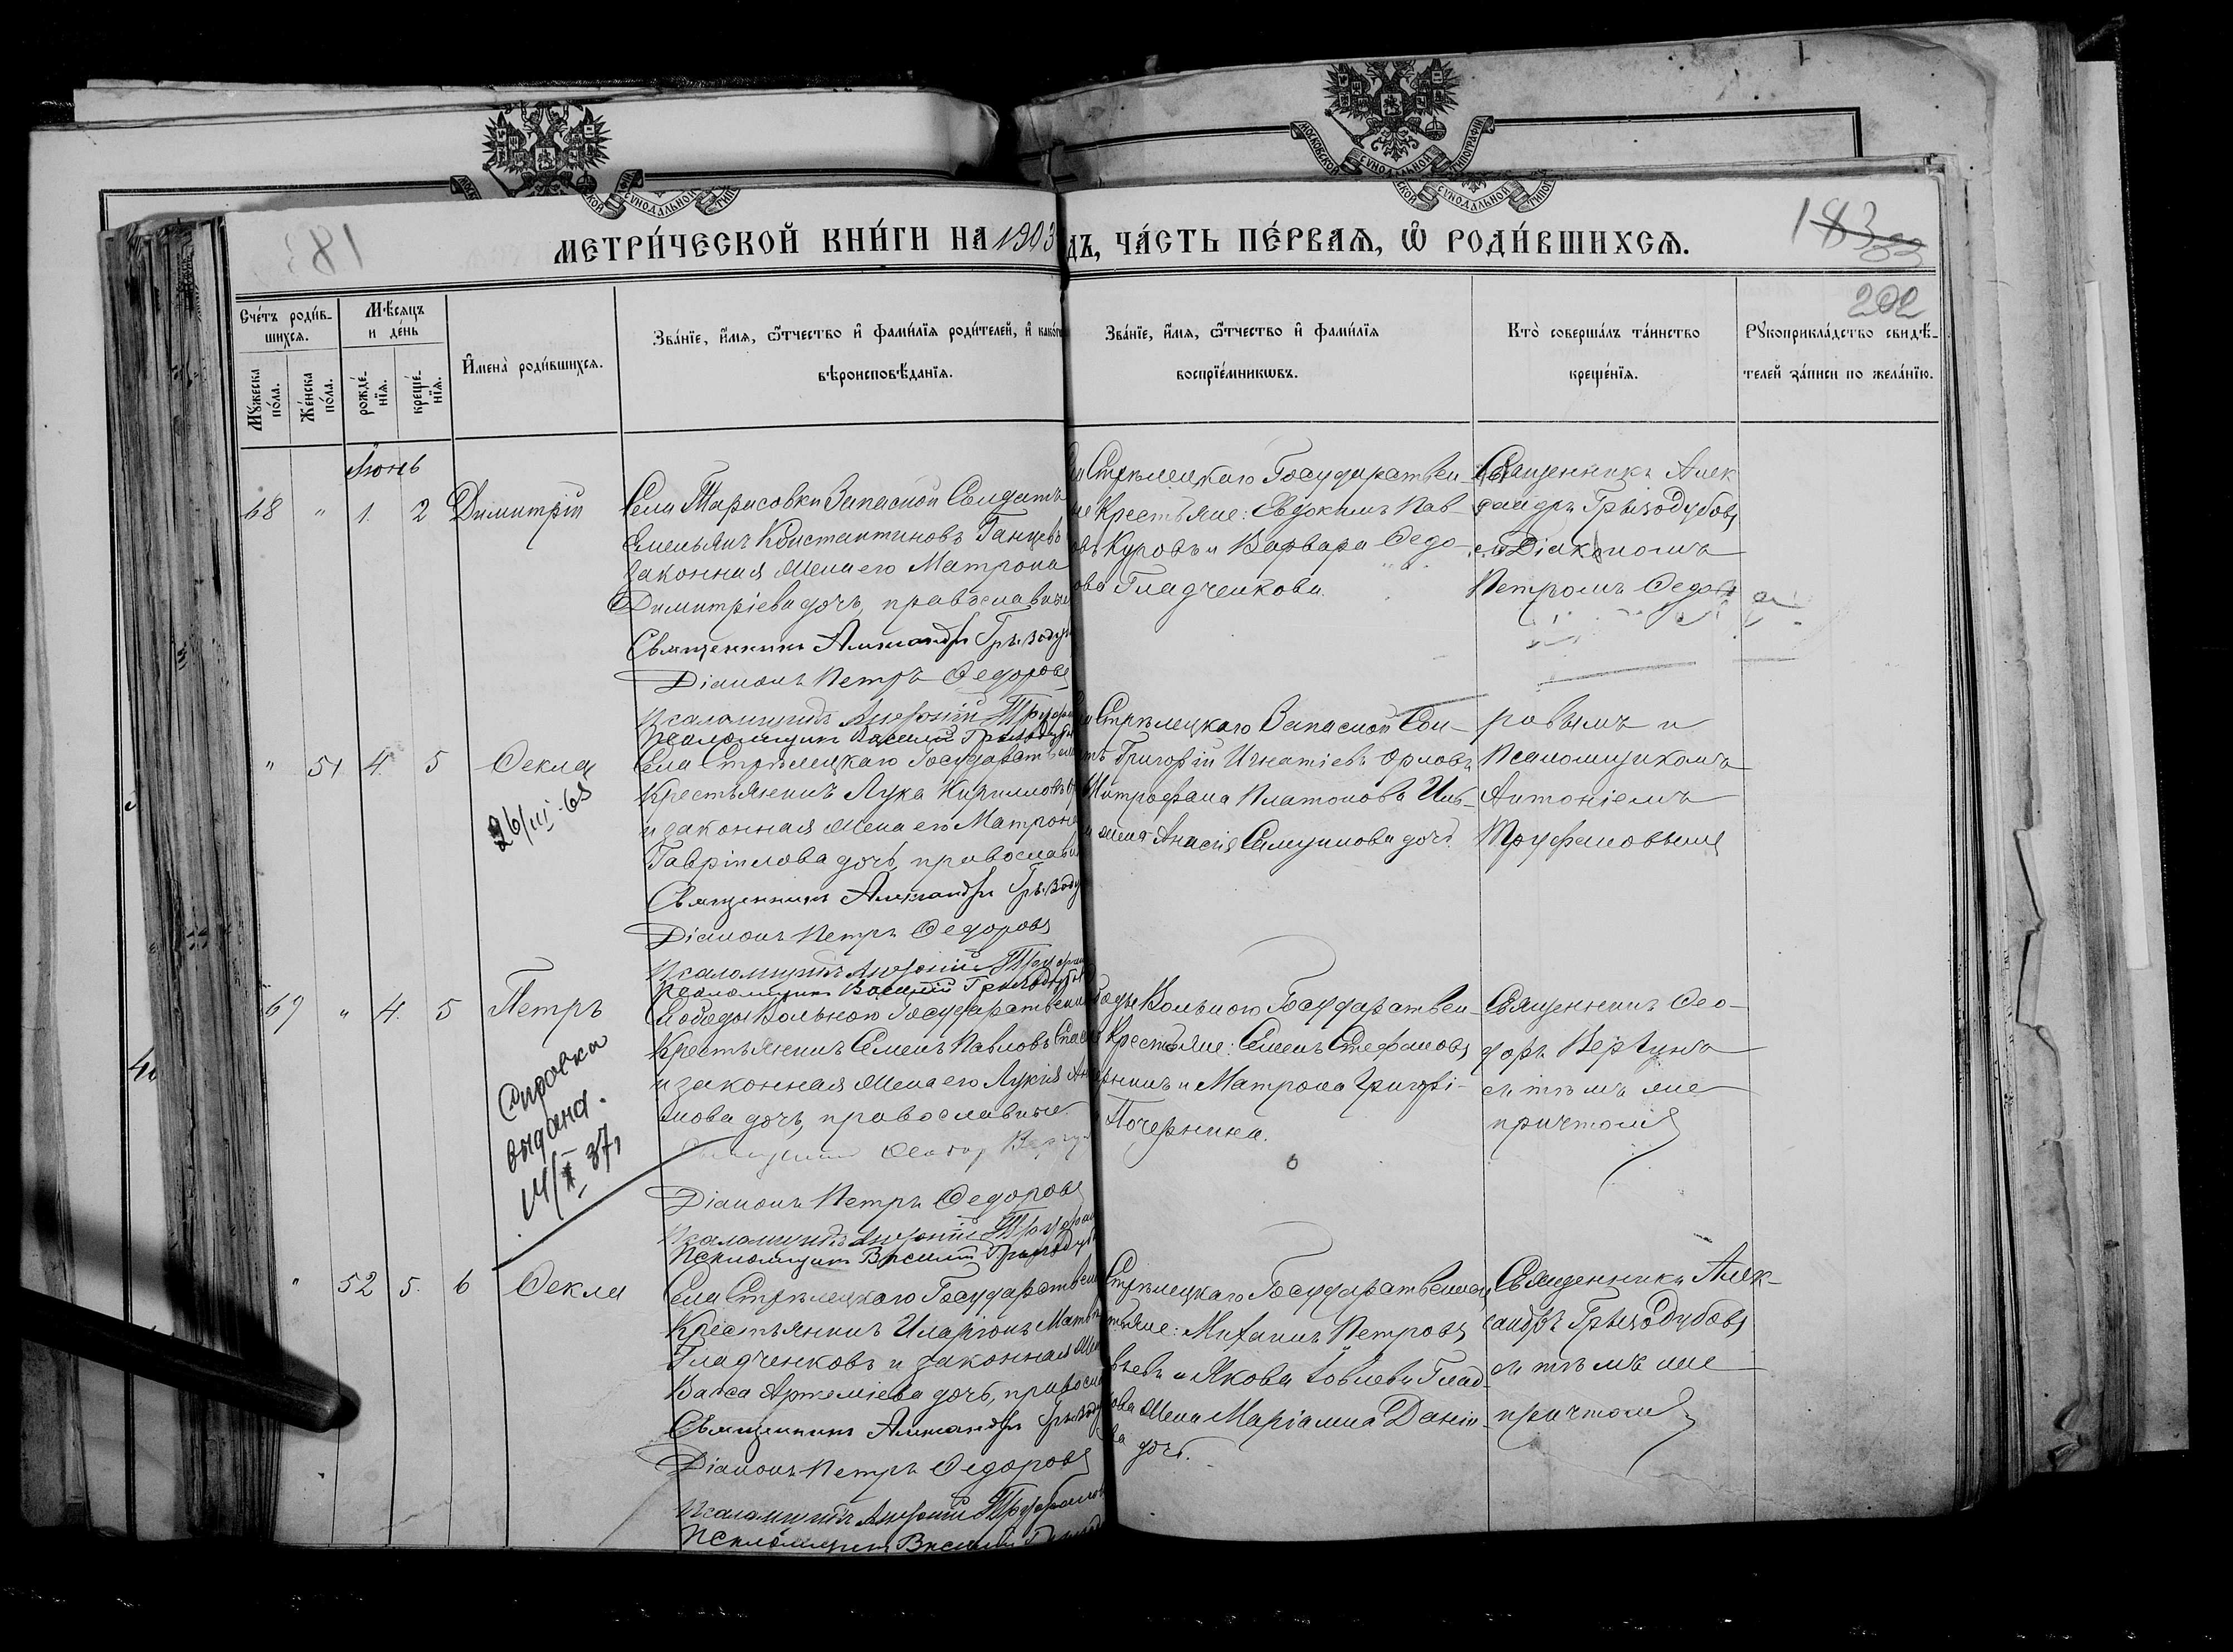 МЕТРИ́ЧЕСКОЙ КНИ́ГИ НА 1903 ДЪ, ЧА́СТЬ ПЕ́РВАЯ, Ѡ РОДИ́ВШИХСЯ.
183
202
Сче́тъ роди́в-
шихся.
Мѣ́сяцъ
и де́нь
Мꙋжеска
по́ла.
Же́нска
по́ла.
рожде́-
нїя.
креще́-
нїя.
И҆мена̀ роди́вшихся.
Зва́нїе, и҆́мя, ѻ҆́тчество и҆ фами́лїя роди́телей, и҆ како́г
вѣроисповѣ́данїя.
Зва́нїе, и҆́мя, ѻ҆́тчество и҆ фами́лїя
воспрїе́мникѡвъ.
Кто̀ соверша́лъ та́инство
креще́нїя.
Рꙋкоприкла́дство свидѣ́-
телей за́писи по жела́нїю.
Іюнь
68 " 1. 2 Димитрій
Села Тарасовки Запасной Солдатъ
Емельянъ Константиновъ Ганцевъ
законная жена его Матрона
Димитріева дочь, православные
Священникъ Александръ Грызоду
Діаконъ Петръ Федоровъ
Псаломщикъ Антоній Труфан
Псаломщикъ Василій Грызодуб
Стрѣлецкаго Государствен-
ые Крестьяне: Евдокимъ Пав-
овъ Куровъ и Варвара Федо-
ова Гладченкова.
Священникъ Алек
сандръ Грызодубовъ
съ Діакономъ
Петромъ Федо
" 51 4. 5 Фекла
26/III-68
Села Стрѣлецкаго Государствен
Крестьянинъ Лука Кирилловъ
и законная жена его Матрона
Гавріилова дочь, православн
Священникъ Александръ Грызоду
Діаконъ Петръ Федоровъ
Псаломщикъ Антоній Труфан
Псаломщикъ Василій Грызодуб
Стрѣлецкаго Запасной Сол-
тъ Григорій Игнатіевъ Орловъ
Митрофана Платонова
жена Семионова дочь.
ровымъ и
Псаломщикомъ
Антоніемъ
Труфановымъ
69 " 4. 5 Петръ
Справка
выдана.
37,
Слободы Вольною Государствен
Крестьянинъ Семенъ Павловъ
и законная жена его Лукія
мова дочь, православные.
Священникъ Феодор
Діаконъ Петръ Федоровъ
Псаломщикъ Антоній Труфан
Псаломщикъ Василій Грызодуб
боды Вольною Государствен-
Крестьяне: Семенъ Стефановъ
и Матрона Григорі-
Почернина.
Священникъ Фео-
доръ Вертунъ
съ тѣмъ же
причтомъ
" 52 5. 6 Фекла
Села Стрѣлецкаго Государствен
Крестьянинъ Иларіонъ Матв
Гладченковъ и законная же
Васса Артеміева дочь, правосл
Священникъ Александръ Грызоду
Діаконъ Петръ Федоровъ
Псаломщикъ Антоній Труфанов
Псаломщикъ Василій
Стрѣлецкаго Государственные
тьяне: Михаилъ Петровъ
и Якова Іовлева Глад-
ова жена Маріамна Даніи-
ва дочь.
Священникъ Алек-
сандръ Грызодубовъ
съ тѣмъ же
причтомъ